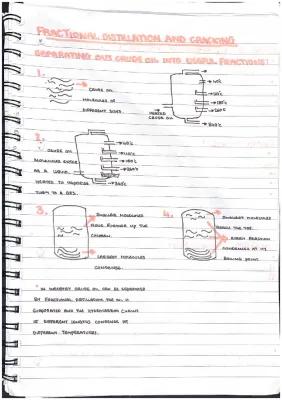 FRACTIONAL DISTILLATION AND CRACKING
SEPARATING OUT CRUDE OIL INTO USEFUL FRACTIONS:
1.
CRUDE OIL
MOLECULES OF
DIFFERENT SIZES.
HEATED
CRUDE OIL
40°C
110°C
180°C
260°C
340°C
2.
CRUDE OIL
MOLECULES ENTER
AS A LIQUID.
HEATED TO VAPORISE
TURN TO A GAS.
40°C
110°C
180°C
260°C
340°C
3.
SMALLER MOLECULES
MOVE FURTHER UP THE
COLUMN.
LARGEST MOLECULES
CONDENSE.
4.
SMALLEST MOLECULES
REACH THE TOP.
EVERY FRACTION
CONDENSES AT ITS
BOILING POINT.
IN INDUSTRY CRUDE OIL IS SEPARATED
BY FRACTIONAL DISTILLATION. THE OIL IS
EVAPORATED AND THE HYDROCARBON CHAINS
OF DIFFERENT LENGTHS CONDENSE AT
DIFFERENT TEMPERATURES.